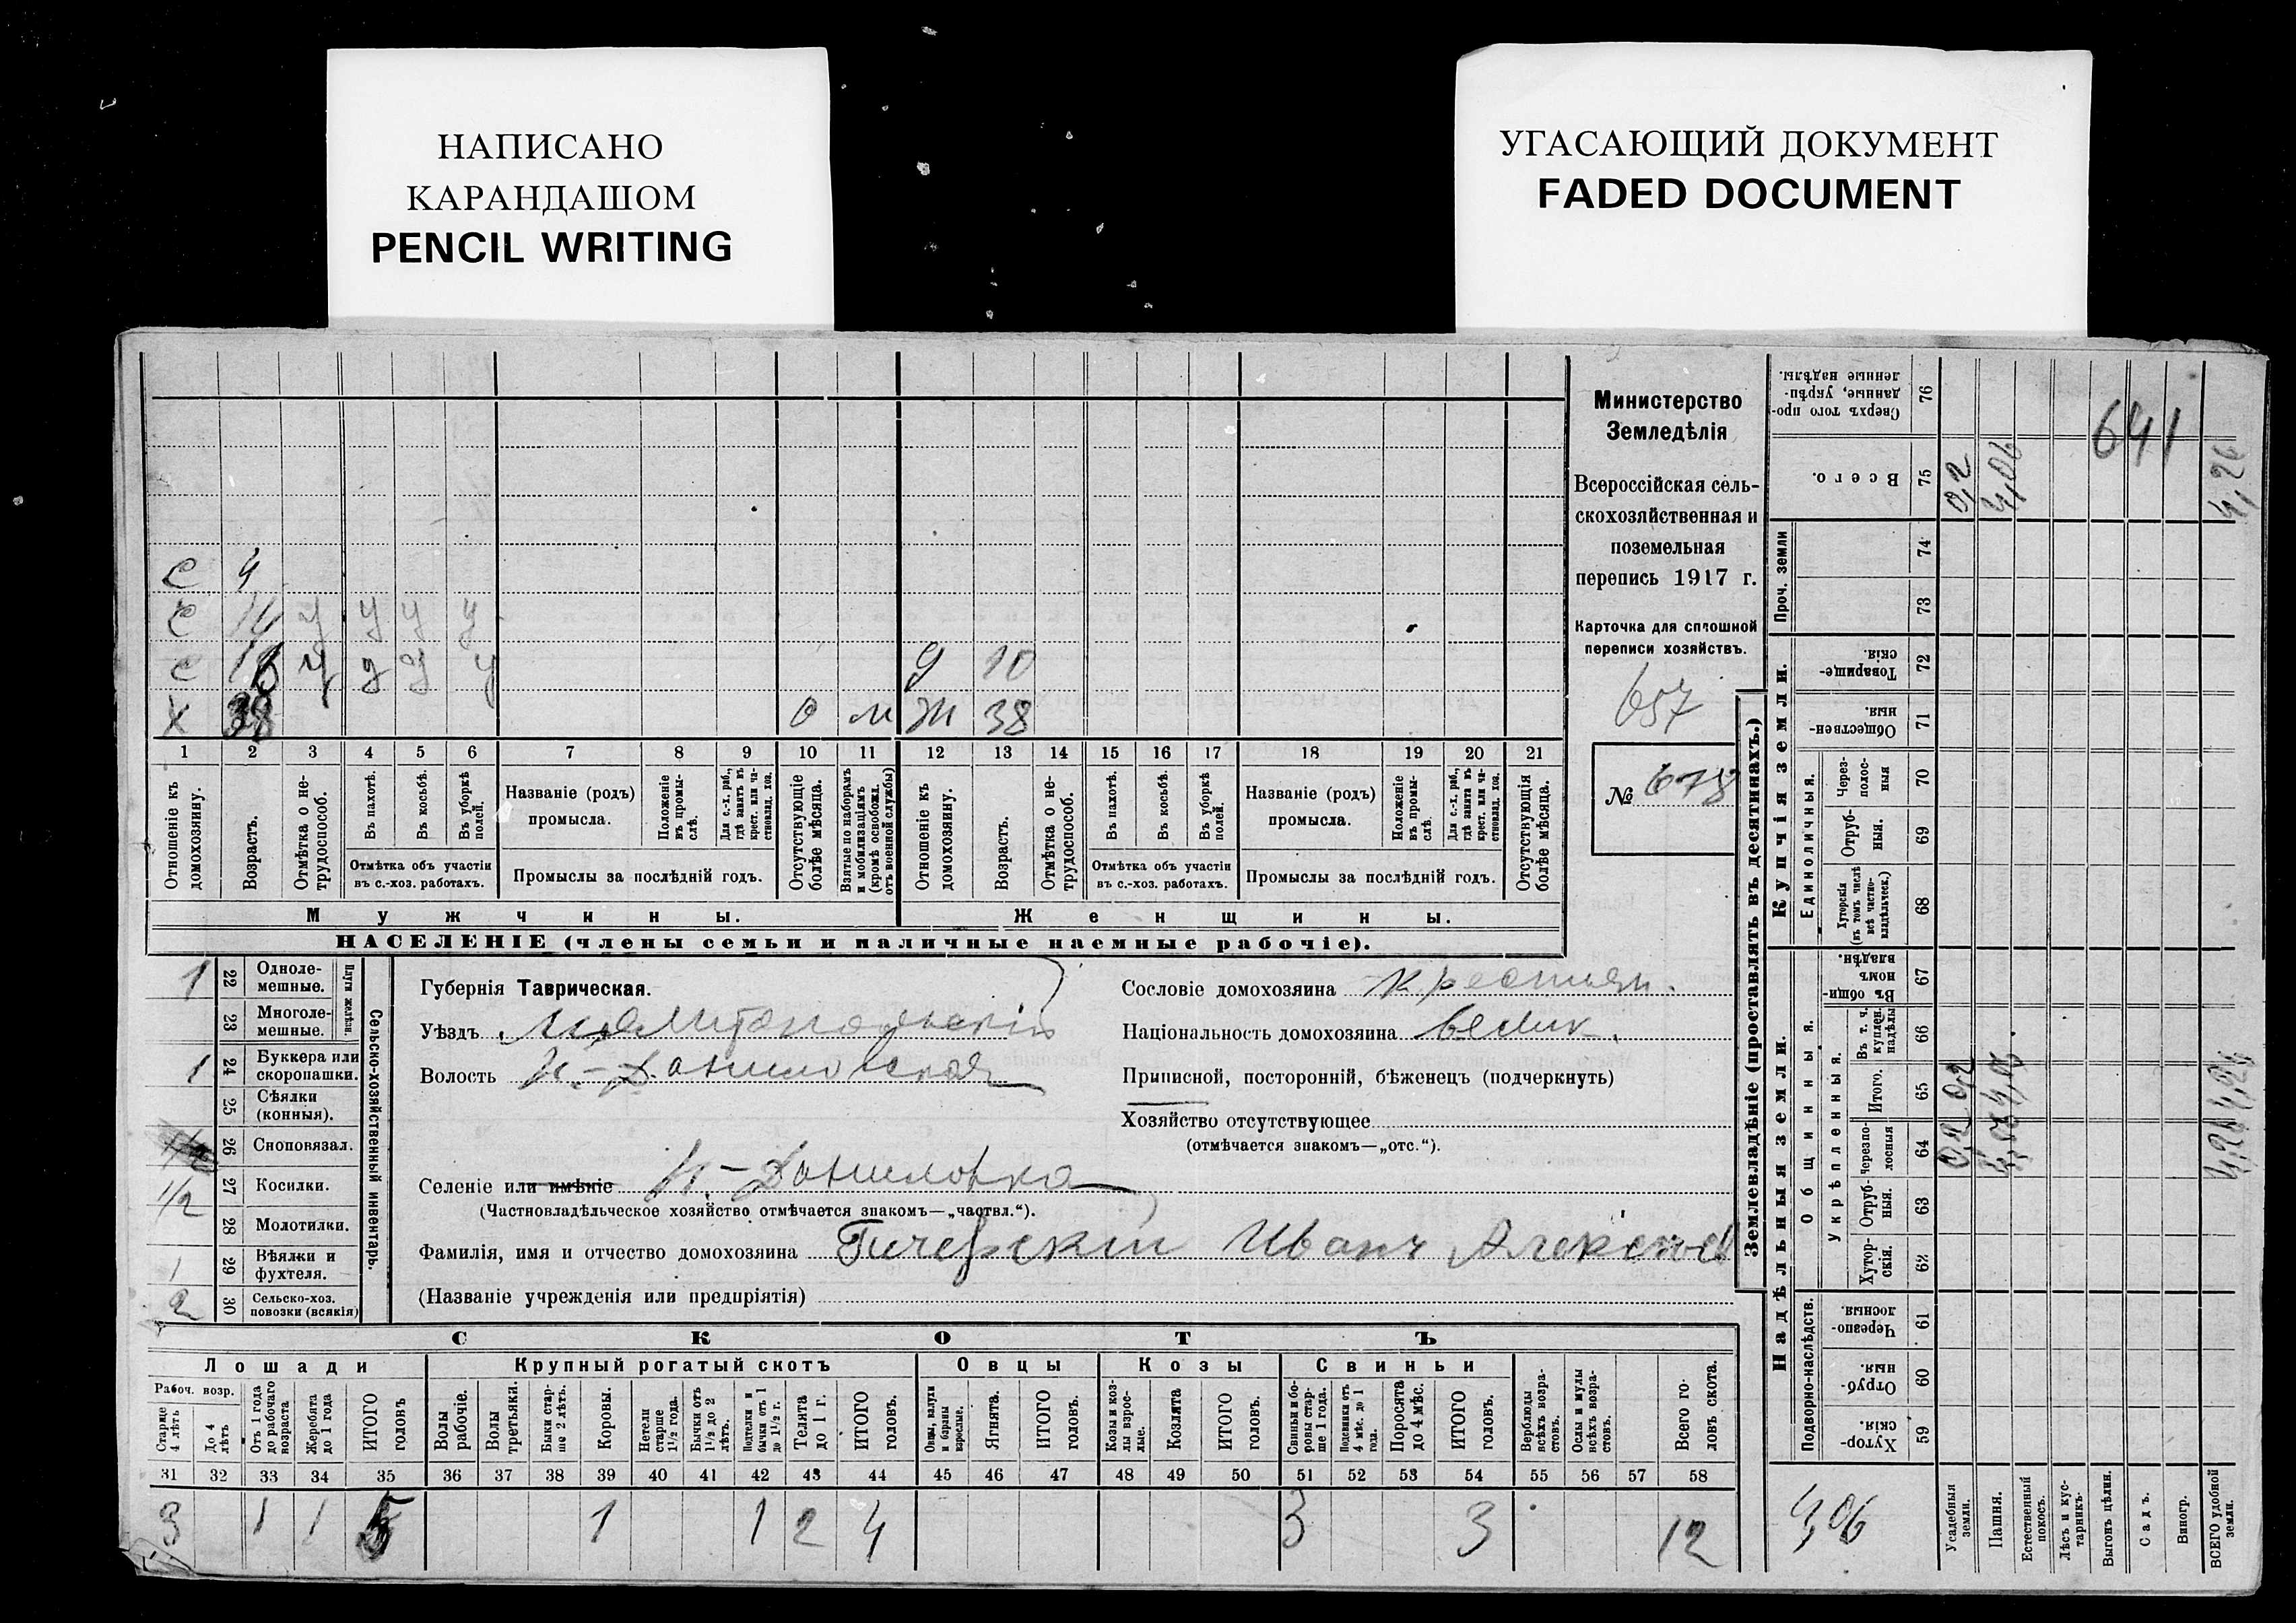 НАПИСАНО
КАРАНДАШОМ
PENCIL WRITING
УГАСАЮЩИЙ ДОКУМЕНТ
FADED DOCUMENT
с 4
с 14 у у у у
с у у у у д 10
х 38 о м ж 38
1 2 3 4 5 6 7 8 9 10 11 12 13 14 15 16 17 18 19 20 21
Отношеніе къ домохозяину.
Возрастъ.
Отмѣтка о не-трудоспособ.
Въ пахотѣ.
Въ косьбѣ.
Въ уборкѣ полей.
Отмѣтка объ участіи
въ с.-хоз. работахъ.
Названіе (родъ)
промысла.
Положеніе въ промы-слѣ.
Для с.-х. раб., гдѣ занятъ въ крест. или ча-стновлад. хоз.
Промыслы за послѣдній годъ.
Отсутствующіе болѣе мѣсяца.
Взятые по наборамъ и мобилизаціямъ (кромѣ освобожд. отъ военной службы)
Отношеніе къ домохозяину.
Возрастъ.
Отмѣтка о не-трудоспособ.
Въ пахотѣ.
Въ косьбѣ.
Въ уборкѣ полей.
Отмѣтка объ участіи
въ с.-хоз. работахъ.
Названіе (родъ)
промысла.
Положеніе въ промы-слѣ.
Для с.-х. раб., гдѣ занята въ крест. или ча-стновлад. хоз.
Промыслы за послѣдній годъ.
Отсутствующія болѣе мѣсяца.
Мужчины.
Женщины.
НАСЕЛЕНІЕ (члены семьи и наличные наемные рабочіе).
Министерство
Земледѣлія
Всероссійская сель-
скохозяйственная и
поземельная
перепись 1917 г.
Карточка для сплошной
переписи хозяйствъ.
657
№ 678
1 22 Одноле-мешные.
23 Многоле-мешные.
Плуги желѣзн.
1 24 Буккера или скоропашки.
25 Сѣялки (конныя).
26 Сноповязал.
1/2 27 Косилки.
28 Молотилки.
1 29 Вѣялки и фухтеля.
2 30 Сельско-хоз. повозки (всякія)
Сельско-хозяйственный инвентарь.
Губернія Таврическая.
Уѣздъ Мелитопольскій
Волость Н.-Даниловская
Селеніе или имѣніе Н.-Даниловка
(Частновладѣльческое хозяйство отмѣчается знакомъ—„частвл.“).
Фамилія, имя и отчество домохозяина Иванъ
(Названіе учрежденія или предпріятія)
Сословіе домохозяина крестьян.
Національность домохозяина велик.
Приписной, посторонній, бѣженецъ (подчеркнуть)
Хозяйство отсутствующее
(отмѣчается знакомъ—„отс.“).
СКОТЪ
Лошади
Крупный рогатый скотъ
Овцы
Козы
Свиньи
Рабоч. возр.
Старше 4 лѣтъ
До 4 лѣтъ
Отъ 1 года до рабочаго возраста
Жеребята до 1 года
ИТОГО головъ
Волы рабочіе.
Волы третьяки.
Быки стар-ше 2 лѣтъ.
Коровы.
Нетели старше 1½ года.
Бычки отъ 1½ до 2 лѣтъ.
Подтелки и бычки отъ 1 до 1½ г.
Телята до 1 г.
ИТОГО головъ.
Овцы, валухи и бараны взрослые.
Ягнята.
ИТОГО головъ.
Козы и коз-лы взрос-лые.
Козлята
ИТОГО головъ.
Свиньи и бо-ровы стар-ше 1 года.
Подсвинки отъ 4 мѣс. до 1 года.
Поросята до 4 мѣс.
ИТОГО головъ.
Верблюды всѣхъ возра-стовъ.
Ослы и мулы всѣхъ возра-стовъ.
Всего го-ловъ скота.
31 32 33 34 35 36 37 38 39 40 41 42 43 44 45 46 47 48 49 50 51 52 53 54 55 56 57 58
3 1 1 5 1 1 2 4 3 3 12
Землевладѣніе (проставлять въ десятинахъ.)
Купчія земли.
Надѣльныя земли.
Сверхъ того про-данные, укрѣп-ленные надѣлы. 76
641
Всего. 75 0,2 4,06 4,26
Проч. земли 74
73
Товарище-скія. 72
Обществен-ныя. 71
Единоличныя.
Через-полос-ныя 70
Отруб-ныя. 69
Хуторскія (въ томъ числѣ всѣ частно-владѣльческ.) 68
Общинныя.
Въ общин-номъ владѣн. 67
Укрѣпленныя.
Въ т. ч. куплен. надѣлы 66
Итого. 65 0,2 4,06 4,26
Черезпо-лосныя 64 0,2 4,06 4,26
Отруб-ныя. 63
Хутор-скія. 62
Подворно-наслѣдств.
Черезпо-лосныя 61
Отруб-ныя. 60
Хутор-скія. 59
4,06
Усадебныя земли.
Пашня.
Естественный покосъ.
Лѣсъ и кус-тарникъ.
Выгонъ цѣлин.
Садъ.
Виногр.
ВСЕГО удобной земли.